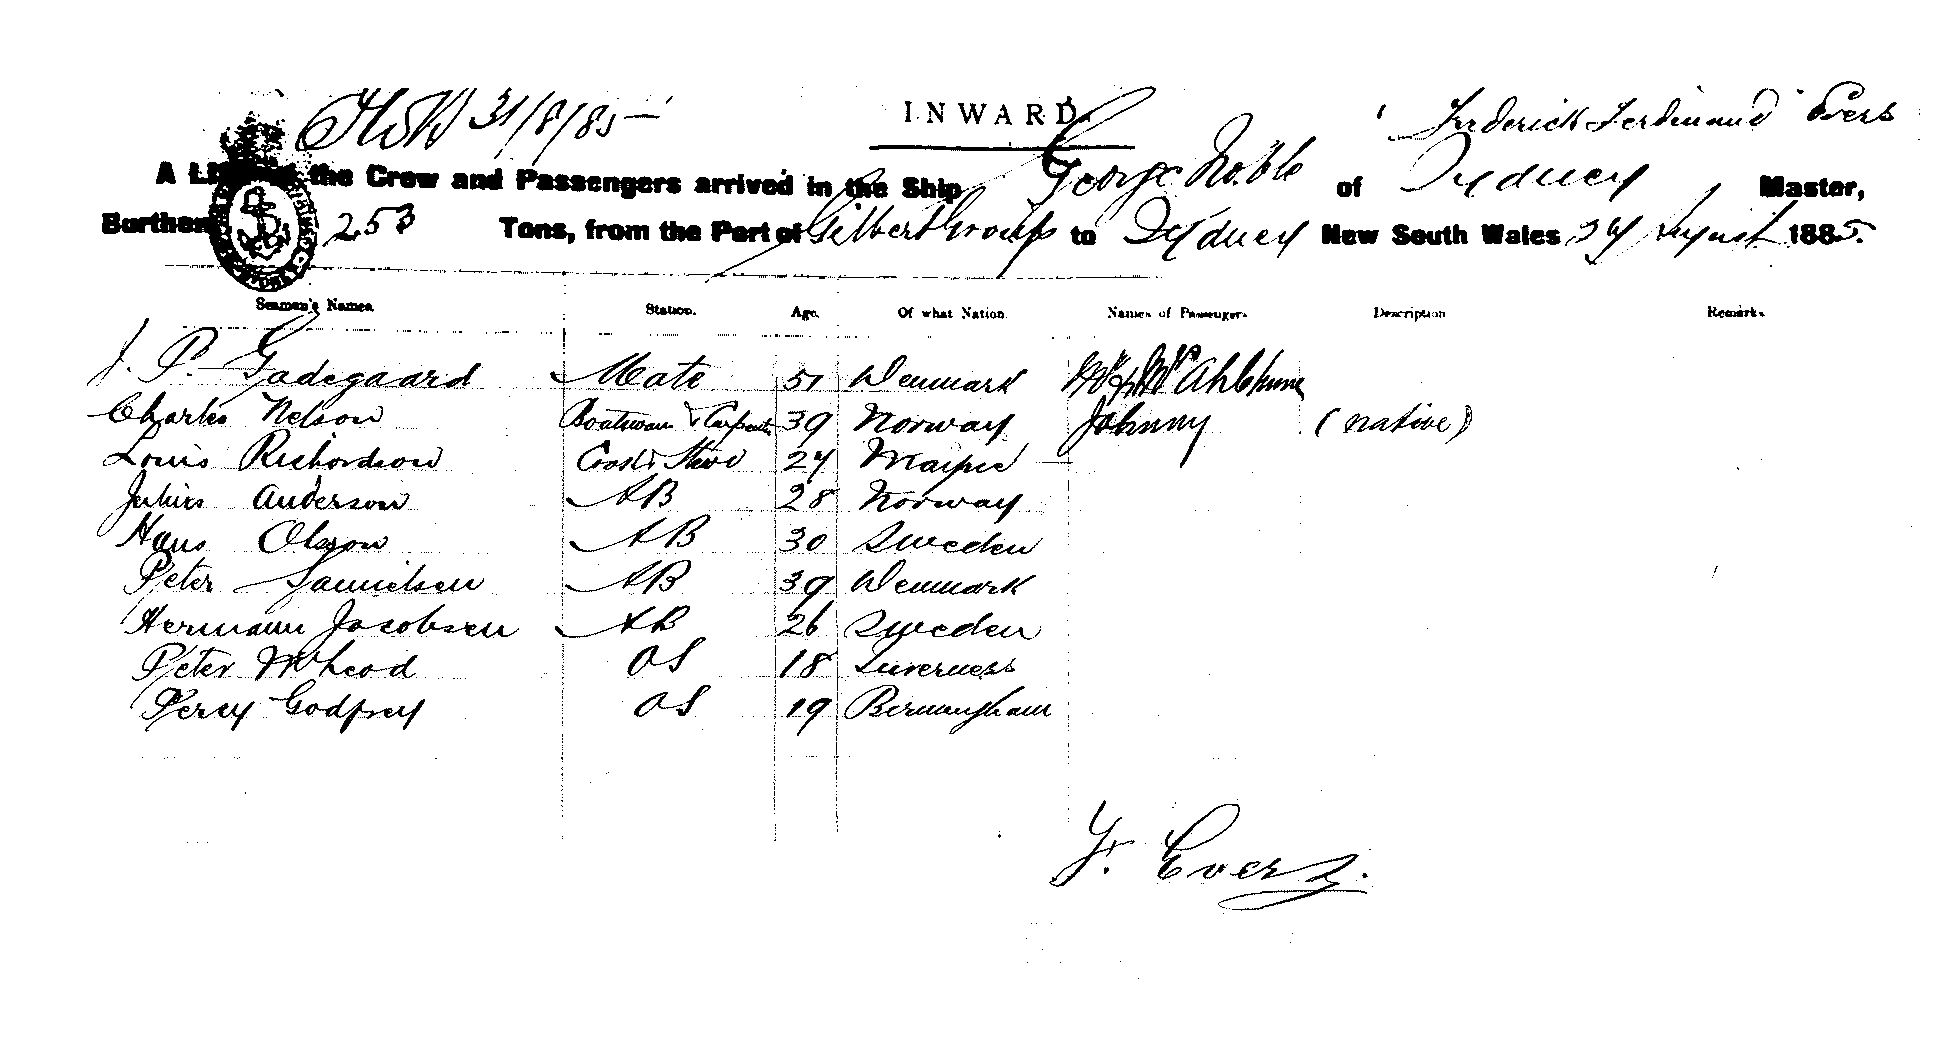 31/8/85
INWARD.
Frederick Ferdinand Evers
A List of the Crew and Passengers arrived in the Ship George Noble of Sydney Master,
Burthen 253 Tons, from the Port of Gilbert Group to Sydney New South Wales August 1885.
Seaman's Names. Station. Age. Of what Nation. Names of Passengers. Description Remarks.
J. P. Gadegaard Mate 51 Denmark
Charles Nelson Boatswain & Carpenter 39 Norway Johnny (native)
Louis Richardson Cook & Stewd 24
Julius Anderson AB 28 Norway
Hans Olsson AB 30 Sweden
Peter Samielsen AB 39 Denmark
Hermann Jacobsen AB 26 Sweden
Peter McLeod OS 18 Inverness
Percy Godfrey OS 19 Bermingham
F. Evers.